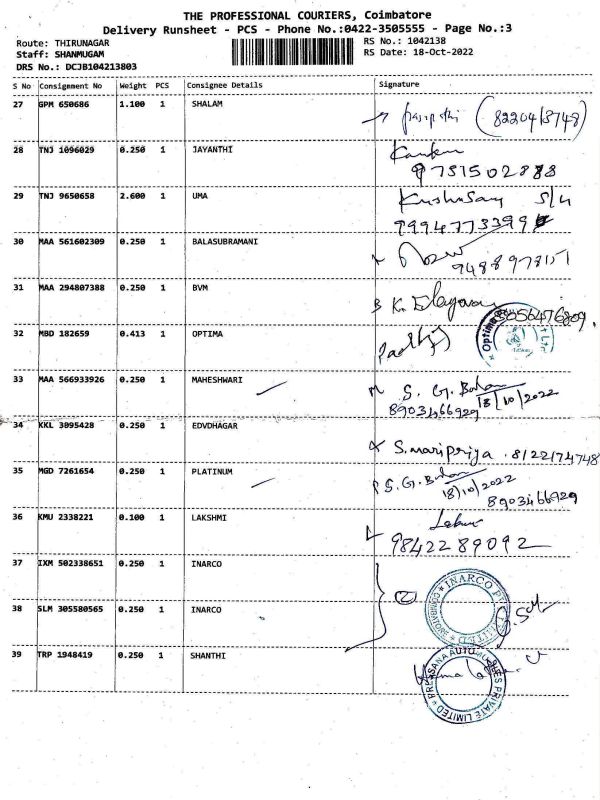 THE PROFESSIONAL COURIERS, Coimbatore
Delivery Runsheet - PCS - Phone No.:0422-3505555 - Page No.:3
Route: THIRUNAGAR
RS No.: 1042138
Staff: SHANMUGAM
RS Date: 18-Oct-2022
DRS No.: DCJB104213803
S No Consignment No Weight PCS Consignee Details Signature
27 GPM 650686 1.100 1 SHALAM
28 TNJ 1096029 0.250 1 JAYANTHI
29 TNJ 9650658 2.600 1 UMA
30 MAA 561602309 0.250 1 BALASUBRAMANI
9488978151
31 MAA 294807388 0.250 1 BVM
B K. Elayaram
32 MBD 182659 0.413 1 OPTIMA
Optima
33 MAA 566933926 0.250 1 MAHESHWARI
S. G. Balan 18/10/2022
8903466929
34 KKL 3095428 0.250 1 EDVDHAGAR
S. maripriya 8122174748
35 MGD 7261654 0.250 1 PLATINUM
S. G. Balan 18/10/2022
8903466929
36 KMU 2338221 0.100 1 LAKSHMI
9842289092
37 IXM 502338651 0.250 1 INARCO
②
INARCO
COIMBATORE
38 SLM 305580565 0.250 1 INARCO
39 TRP 1948419 0.250 1 SHANTHI
PRIVATE LIMITED